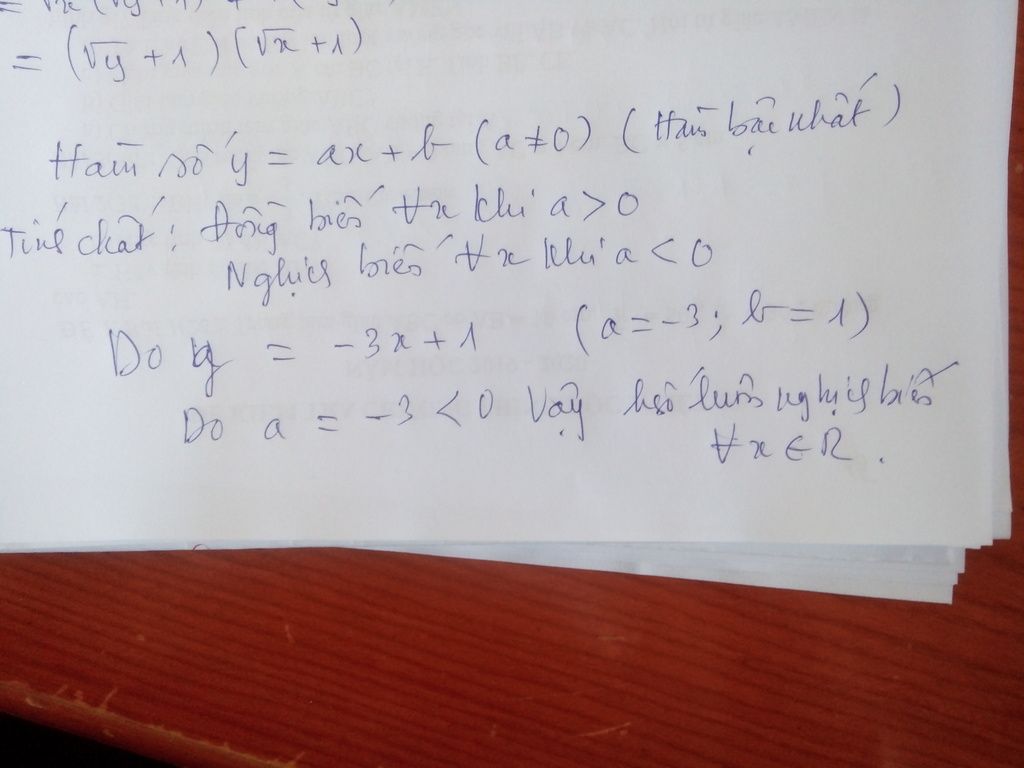 = √x (√y + 1) +
= (√y + 1) (√x + 1)
Hàm số y = ax + b (a ≠ 0) (Hàm bậc nhất)
Tính chất: Đồng biến ∀x khi a > 0
Nghịch biến ∀x khi a < 0
Do y = -3x + 1 (a = -3; b = 1)
Do a = -3 < 0 Vậy hsố luôn nghịch biến
∀x ∈ R.